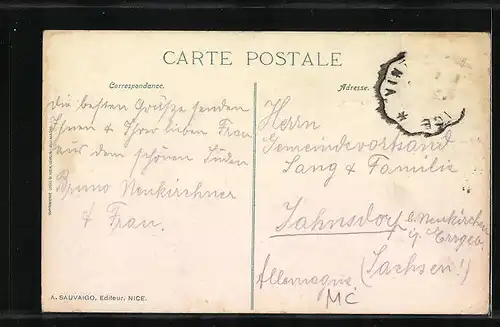 CARTE POSTALE
Correspondance.
Adresse.
Die besten Grüsse senden
Ihnen & Ihrer lieben Frau
aus dem schönen Süden
Bruno Neukirchner
& Frau.
Herrn
Gemeindevorstand
Lang & Familie
Jahnsdorf b. Neukirchen
i. Erzgeb.
(Sachsen!)
Allemagne
MC
A. SAUVAIGO, Editeur, NICE.